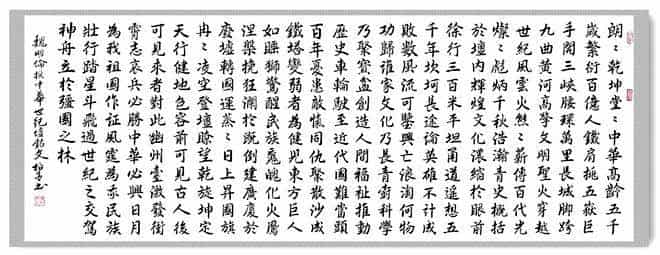 朗々乾坤堂々中華高齡五千
歲繁衍百億人鐵肩挑五嶽巨
手開三峽腰環萬里長城脚跨
九曲黄河高擎文明聖火穿越
世紀風雲火燃々薪傳百代光
燦々彪炳千秋浩瀚青史概括
於壇内輝煌文化濃縮於眼前
徐行三百米平坦甬道遥想五
千年坎坷長途論英雄不計成
敗數風流可鑒興亡浪淘何物
功歸谁家文化乃長青樹科學
乃聚寶盆創造人間福祉推動
歷史車輪駛至近代國難當頭
百年憂患敵愾同仇聚散沙成
鐵塔變弱者為健兒東方巨人
如睡獅驚醒民族魂魄化火鳳
涅槃挽狂瀾於既倒建廣廈於
廢墟轉國運蒸々日上昇國旗
冉々凌空登壇瞭望乾旋坤定
天行健地色容前可見古人後
可見来者對此幽州臺激發衝
霄志哀兵必勝中華必興日月
為我祖國作証風霆為吾民族
壮行踏星斗飛過世紀之交駕
神舟立於强國之林
魏明倫撰中華世紀壇銘文書